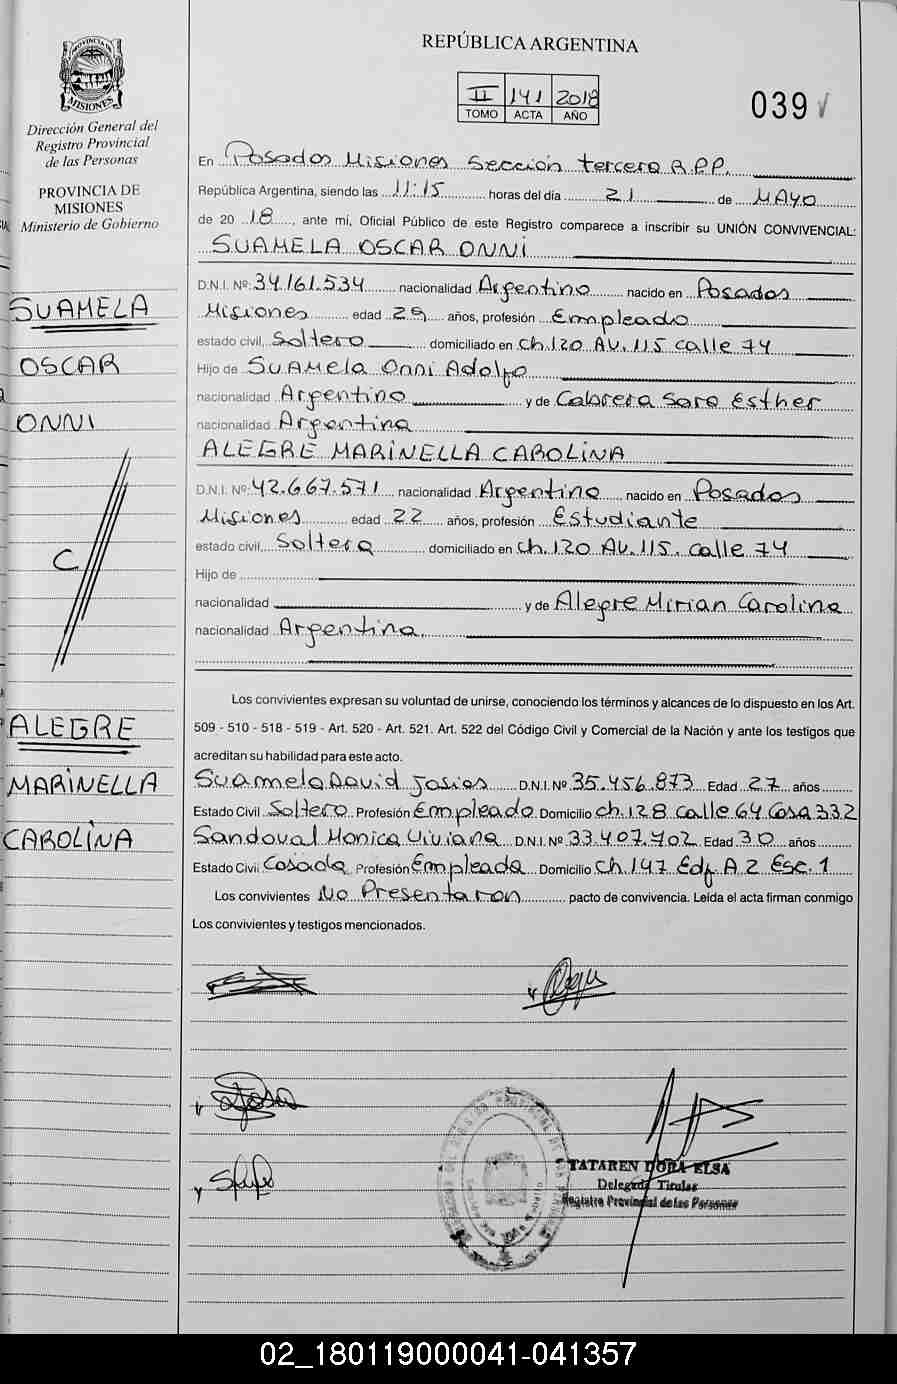 REPÚBLICA ARGENTINA
PROVINCIA DE
MISIONES
Dirección General del
Registro Provincial
de las Personas
PROVINCIA DE
MISIONES
Ministerio de Gobierno
II 141 2018
TOMO ACTA AÑO
039
En Posadas Misiones Sección tercera R.P.P.
República Argentina, siendo las 11:15 horas del día 21 de MAYO
de 20 18, ante mí, Oficial Público de este Registro comparece a inscribir su UNIÓN CONVIVENCIAL:
SUAMELA OSCAR ONNI
D.N.I. Nº: 34.161.534 nacionalidad Argentino nacido en Posadas
Misiones edad 29 años, profesión Empleado
estado civil, Soltero domiciliado en ch.120 AV. 115 calle 74
Hijo de Suamela Onni Adolfo
nacionalidad Argentino y de Cabrera Sara Esther
nacionalidad Argentina
ALEGRE MARINELLA CAROLINA
D.N.I. Nº: 42.667.571 nacionalidad Argentina nacido en Posadas
Misiones edad 22 años, profesión Estudiante
estado civil, Soltera domiciliado en ch.120 AV. 115. calle 74
Hijo de
nacionalidad y de Alegre Mirian Carolina
nacionalidad Argentina
Los convivientes expresan su voluntad de unirse, conociendo los términos y alcances de lo dispuesto en los Art.
509 - 510 - 518 - 519 - Art. 520 - Art. 521. Art. 522 del Código Civil y Comercial de la Nación y ante los testigos que
acreditan su habilidad para este acto.
Suamela David Josias D.N.I. Nº 35.456.873 Edad 27 años
Estado Civil Soltero Profesión Empleado Domicilio ch.128 calle 64 casa 332
Sandoval Monica Viviana D.N.I. Nº 33.407.702 Edad 30 años
Estado Civil Casada Profesión Empleada Domicilio Ch.147 Edf A2 Esc.1
Los convivientes No Presentaron pacto de convivencia. Leída el acta firman conmigo
Los convivientes y testigos mencionados.
SUAMELA
OSCAR
ONNI
C
ALEGRE
MARINELLA
CAROLINA
TATAREN DORA ELSA
Delegada Titular
Registro Provincial de las Personas
02_180119000041-041357